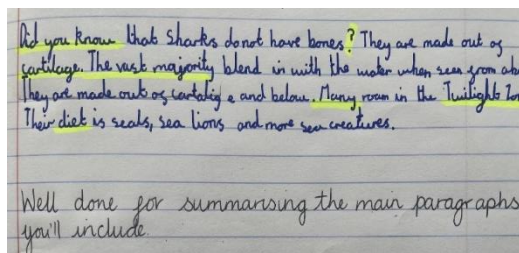 Did you know that Sharks do not have bones? They are made out of
cartilage. The vast majority blend in with the water when seen from
They are made out of cartalig e and below. Many roam in the Twilight
Their diet is seals, sea lions and more sea creatures.
Well done for summarising the main paragraphs
you'll include.